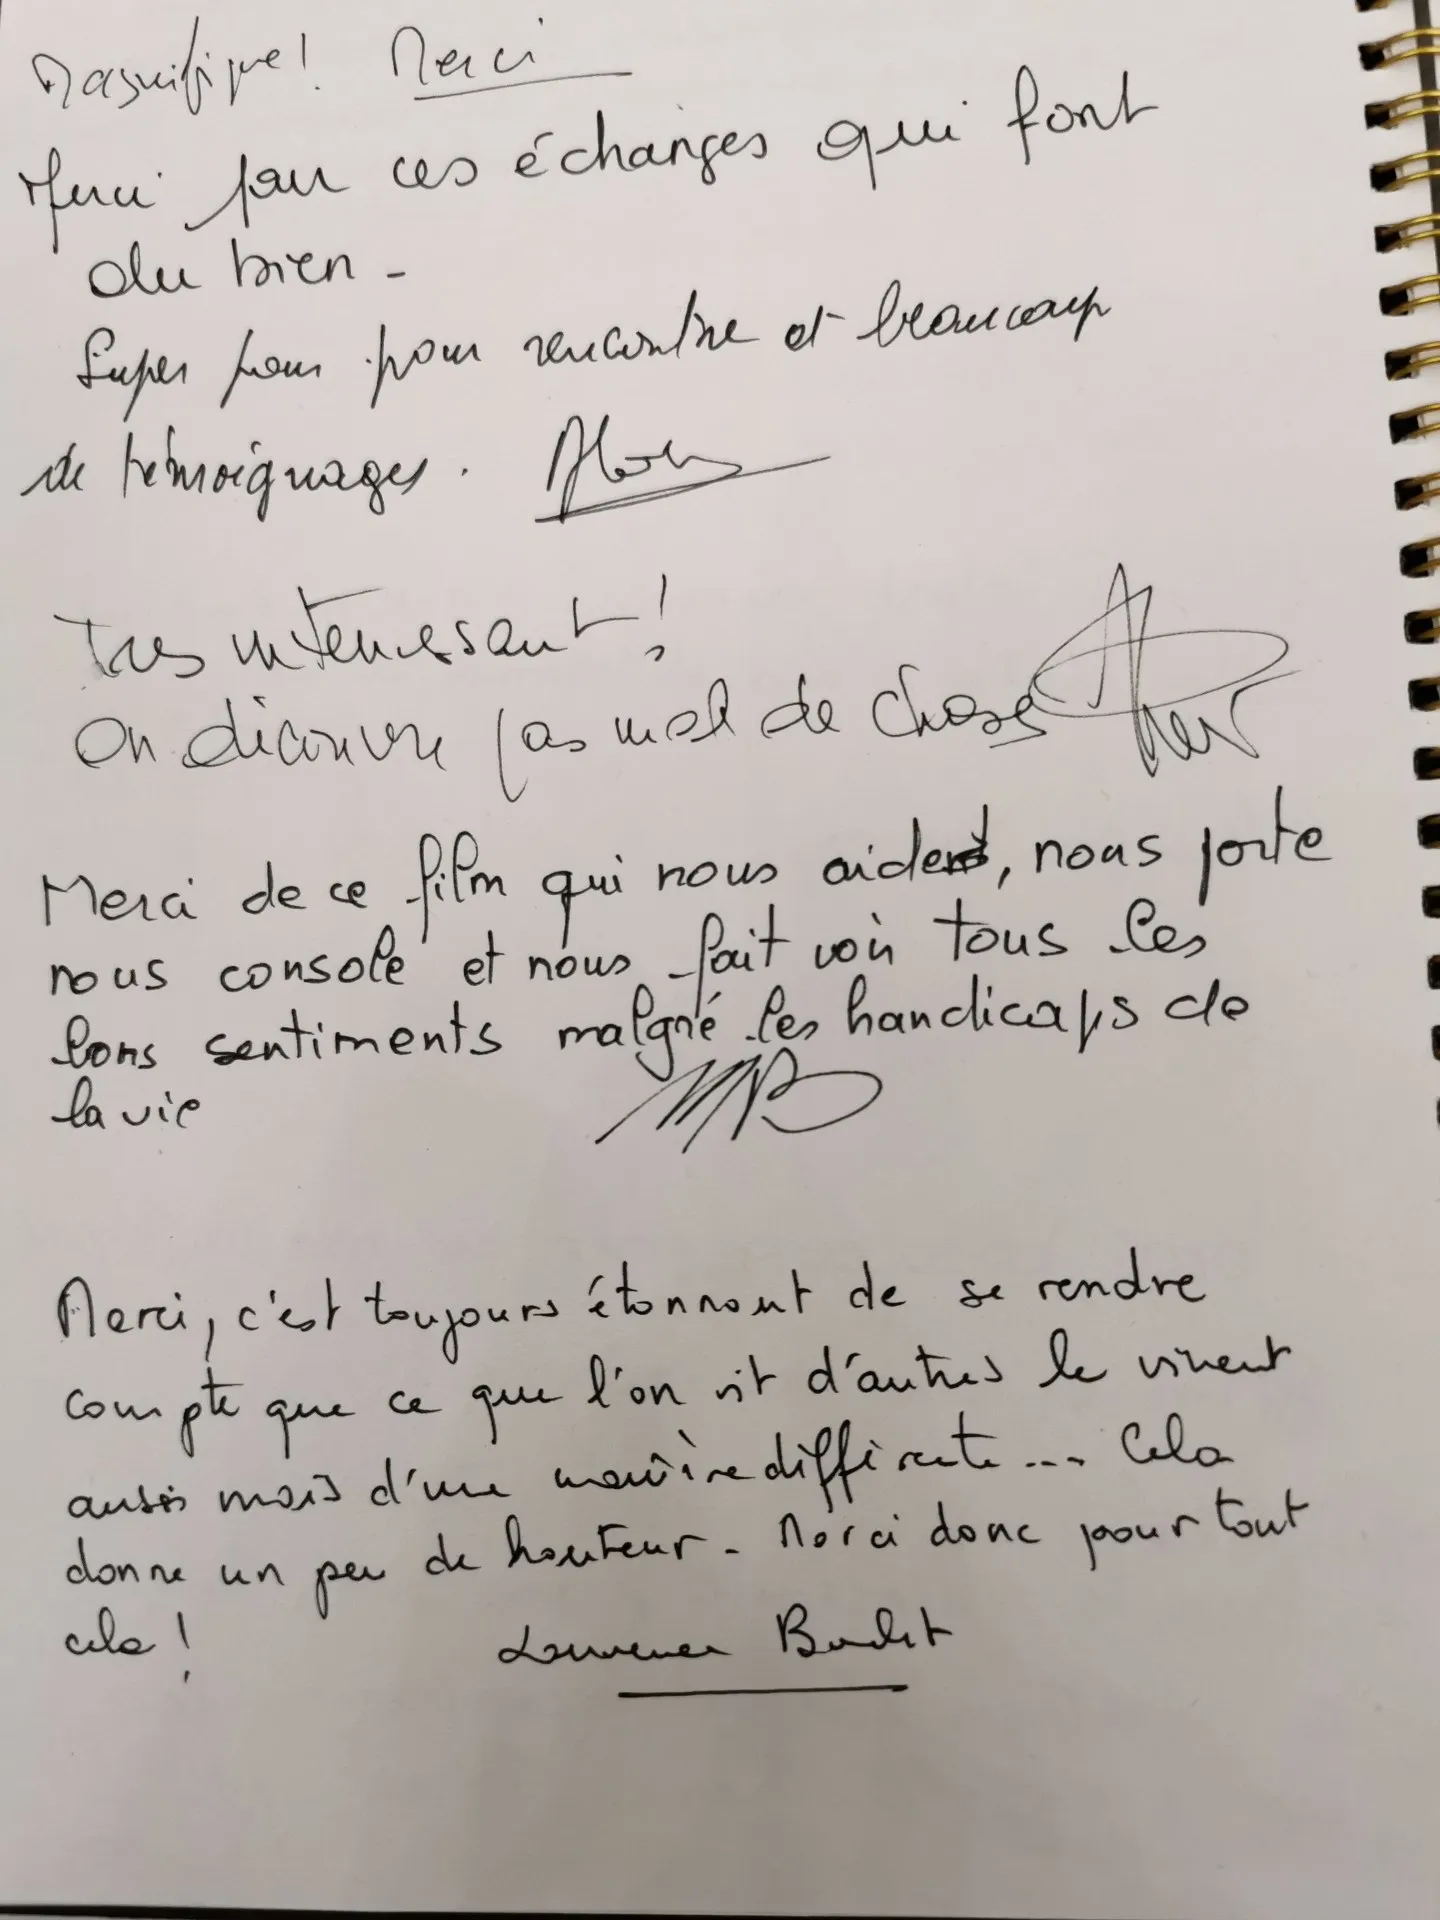 Magnifique! Merci
Merci pour ces échanges qui font
du bien -
Super pour pour rencontre et beaucoup
de témoignages.
Très interressant!
On découvre pas mal de choses
Merci de ce film qui nous aident, nous porte
nous console et nous fait voir tous les
bons sentiments malgré les handicaps de
la vie
MB
Merci, c'est toujours étonnant de se rendre
compte que ce que l'on vit d'autres le vivent
aussi mais d'une manière différente... Cela
donne un peu de hauteur. Merci donc pour tout
cela !
Laurence